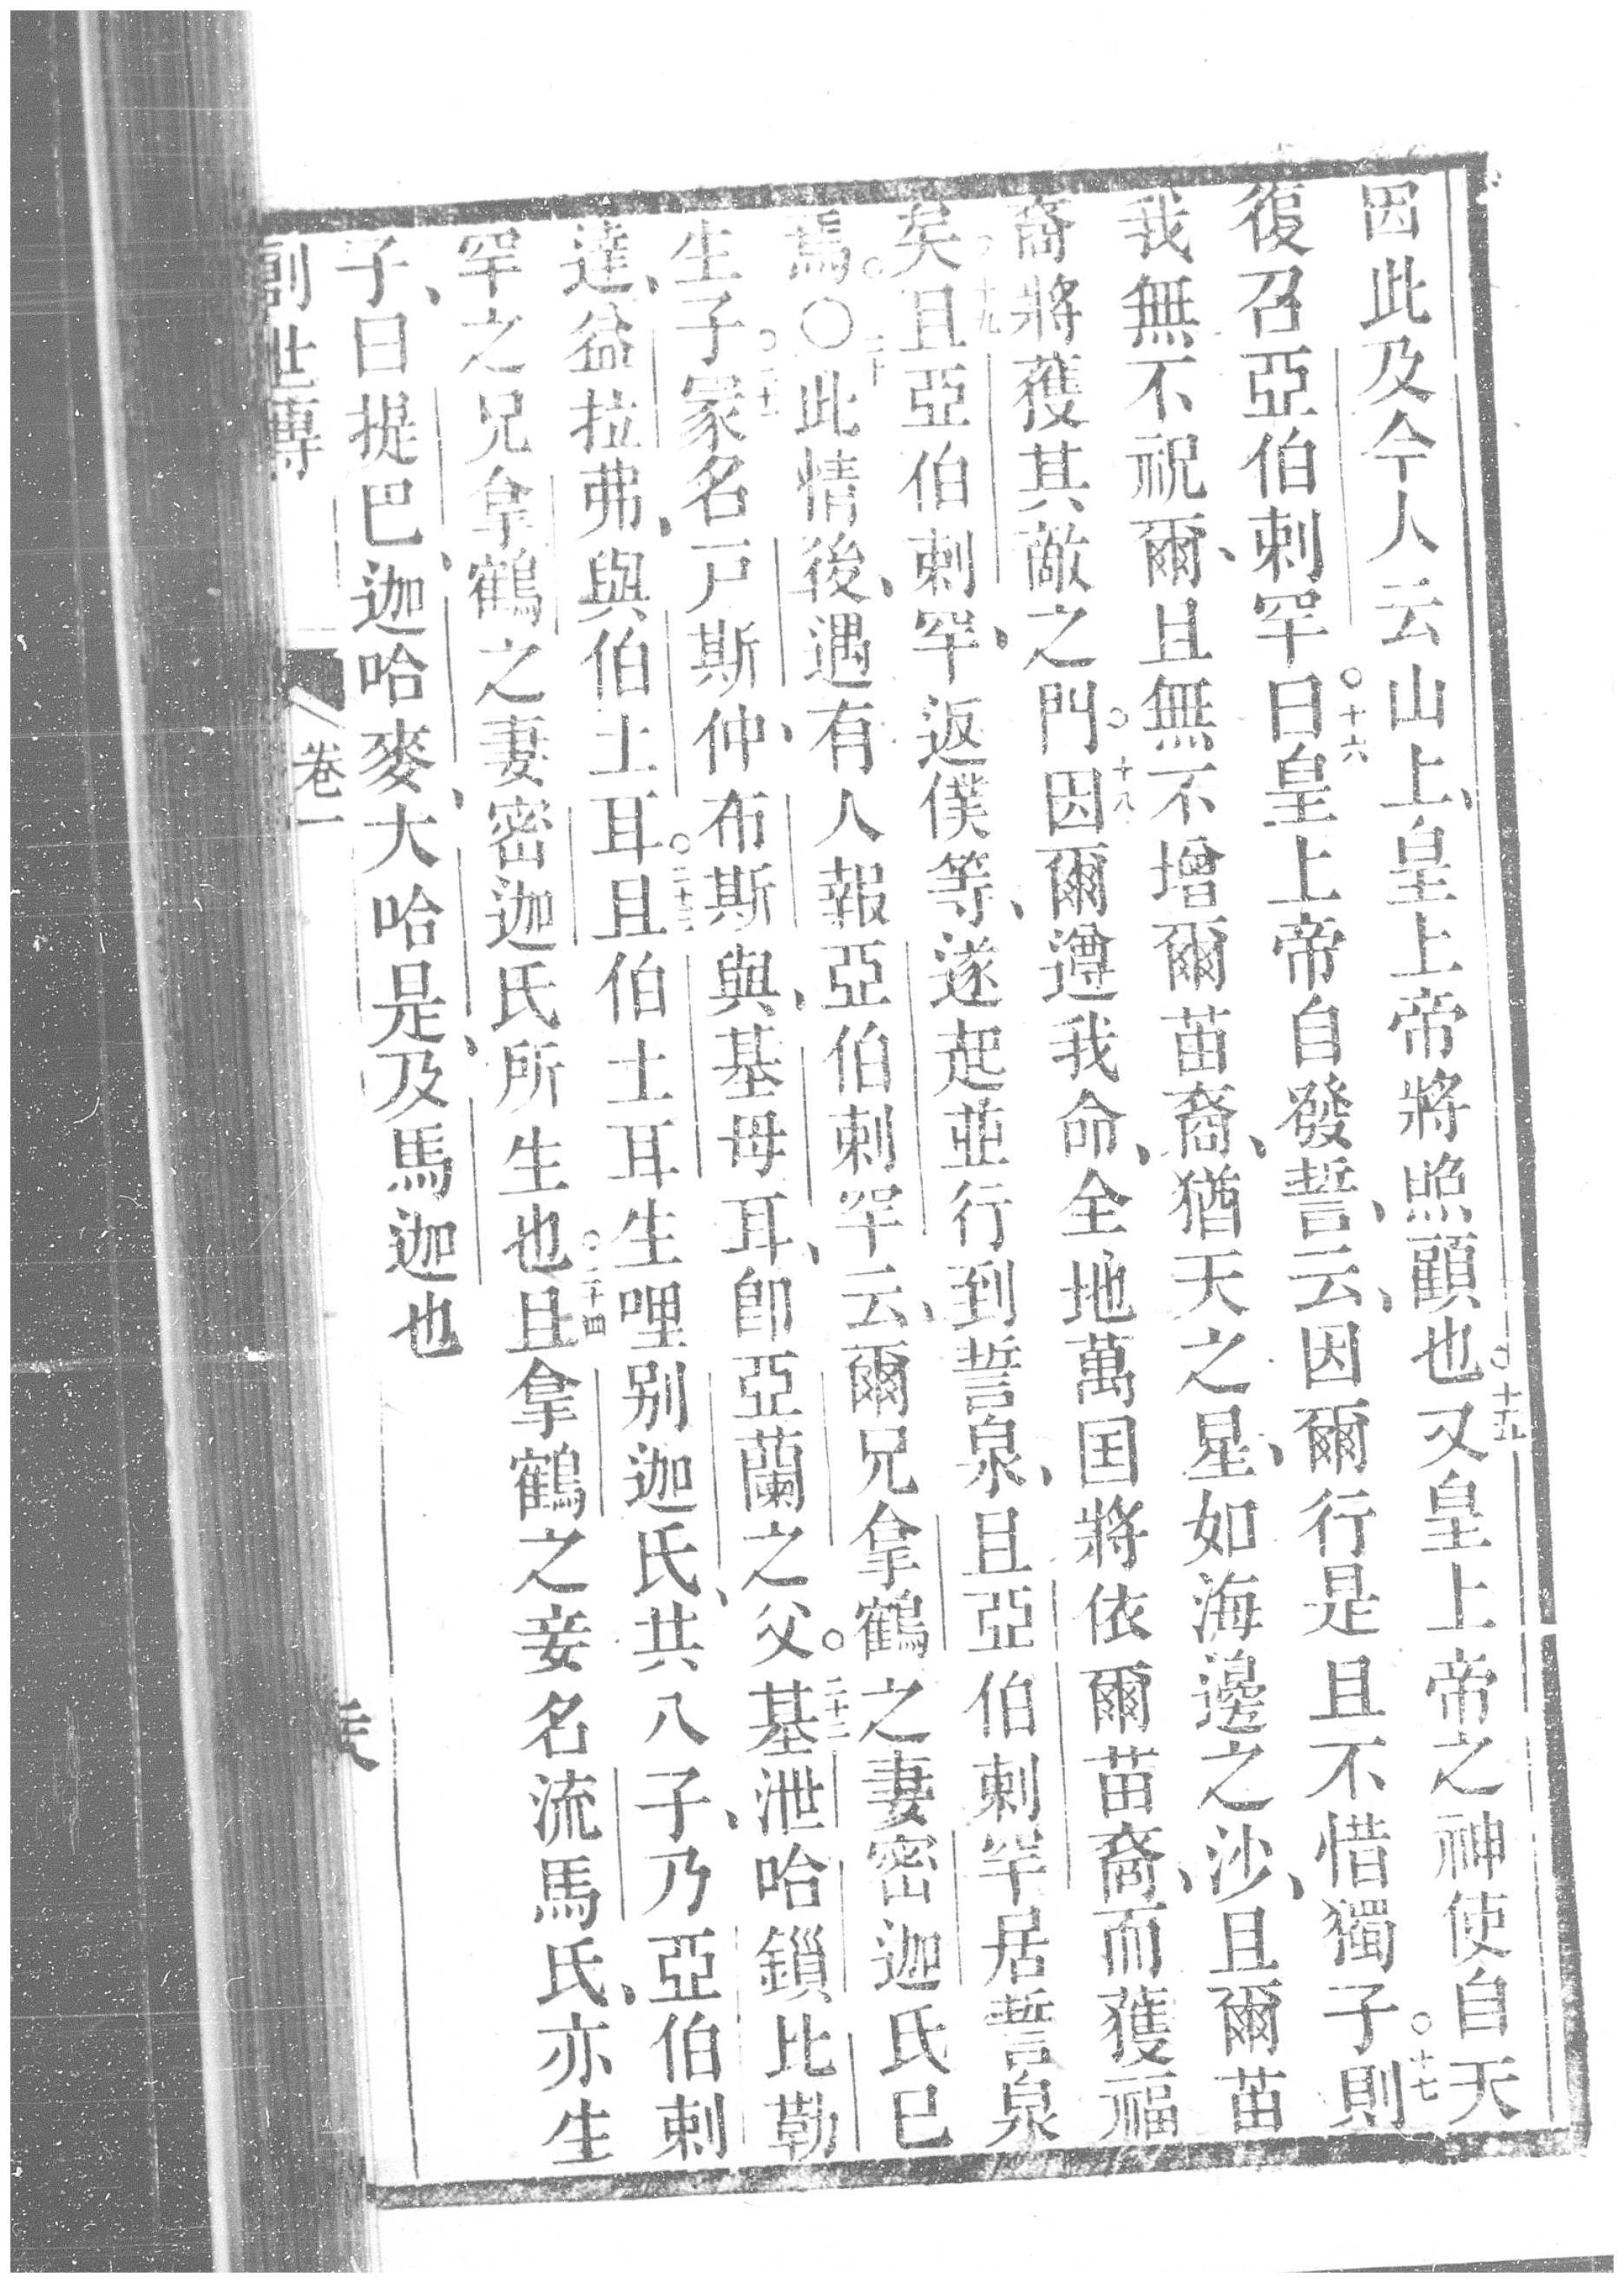 因此及今人云山上、皇上帝將照顧也。十五又皇上帝之神使自天
復召亞伯剌罕。十六曰皇上帝自發誓、云、因爾行是且不惜獨子。十七則
我無不祝爾、且無不增爾苗裔、猶天之星、如海邊之沙、且爾苗
裔將獲其敵之門。十八因爾遵我命、全地萬囯將依爾苗裔、而獲福
矣。十九且亞伯剌罕、返僕等、遂起並行到誓泉、且亞伯剌罕居誓泉
焉。〇二十此情後、遇有人報亞伯剌罕云、爾兄拿鶴之妻密迦氏已
生子。二十一冢名戸斯、仲布斯與、基母耳、卽亞蘭之父。二十二基泄哈鎻比勒
達、益拉弗、與伯土耳。二十三且伯土耳生哩别迦氏、共八子、乃亞伯剌
罕之兄拿鶴之妻密迦氏所生也。二十四且拿鶴之妾名流馬氏、亦生
子、曰提巴、迦哈麥、大哈是、及馬迦也
創世傳
卷一